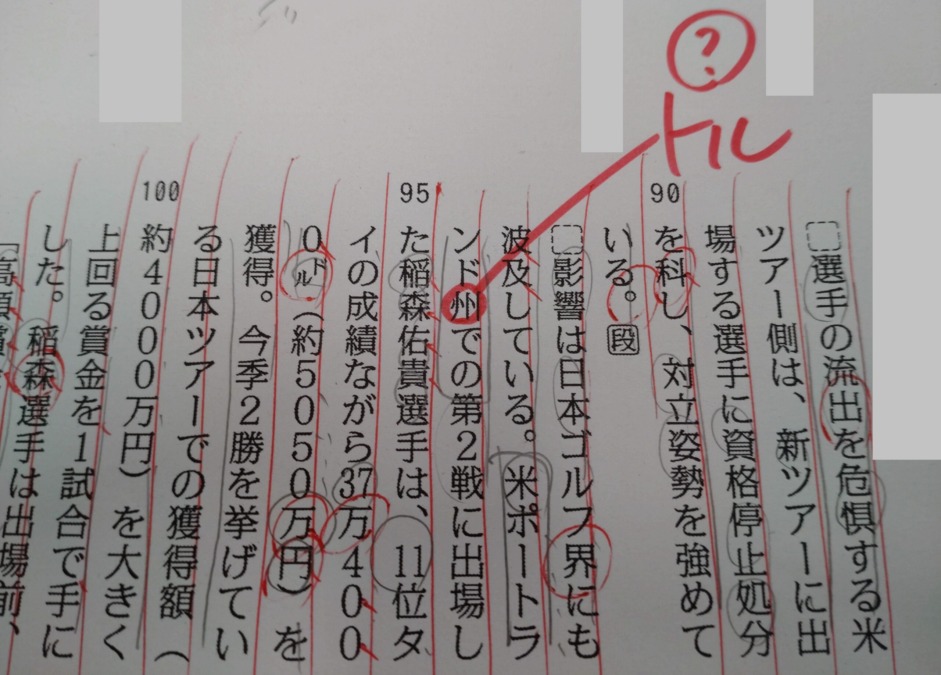 ?
トル
選手の流出を危惧する米
ツアー側は、新ツアーに出
場する選手に資格停止処分
90
を科し、対立姿勢を強めて
いる。段
影響は日本ゴルフ界にも
波及している。米ポートラ
ンド州での第2戦に出場し
95
た稲森佑貴選手は、11位タ
イの成績ながら37万400
0ドル(約5050万円)を
獲得。今季2勝を挙げてい
る日本ツアーでの獲得額(
100
約4000万円)を大きく
上回る賞金を1試合で手に
した。稲森選手は出場前、
「高額賞